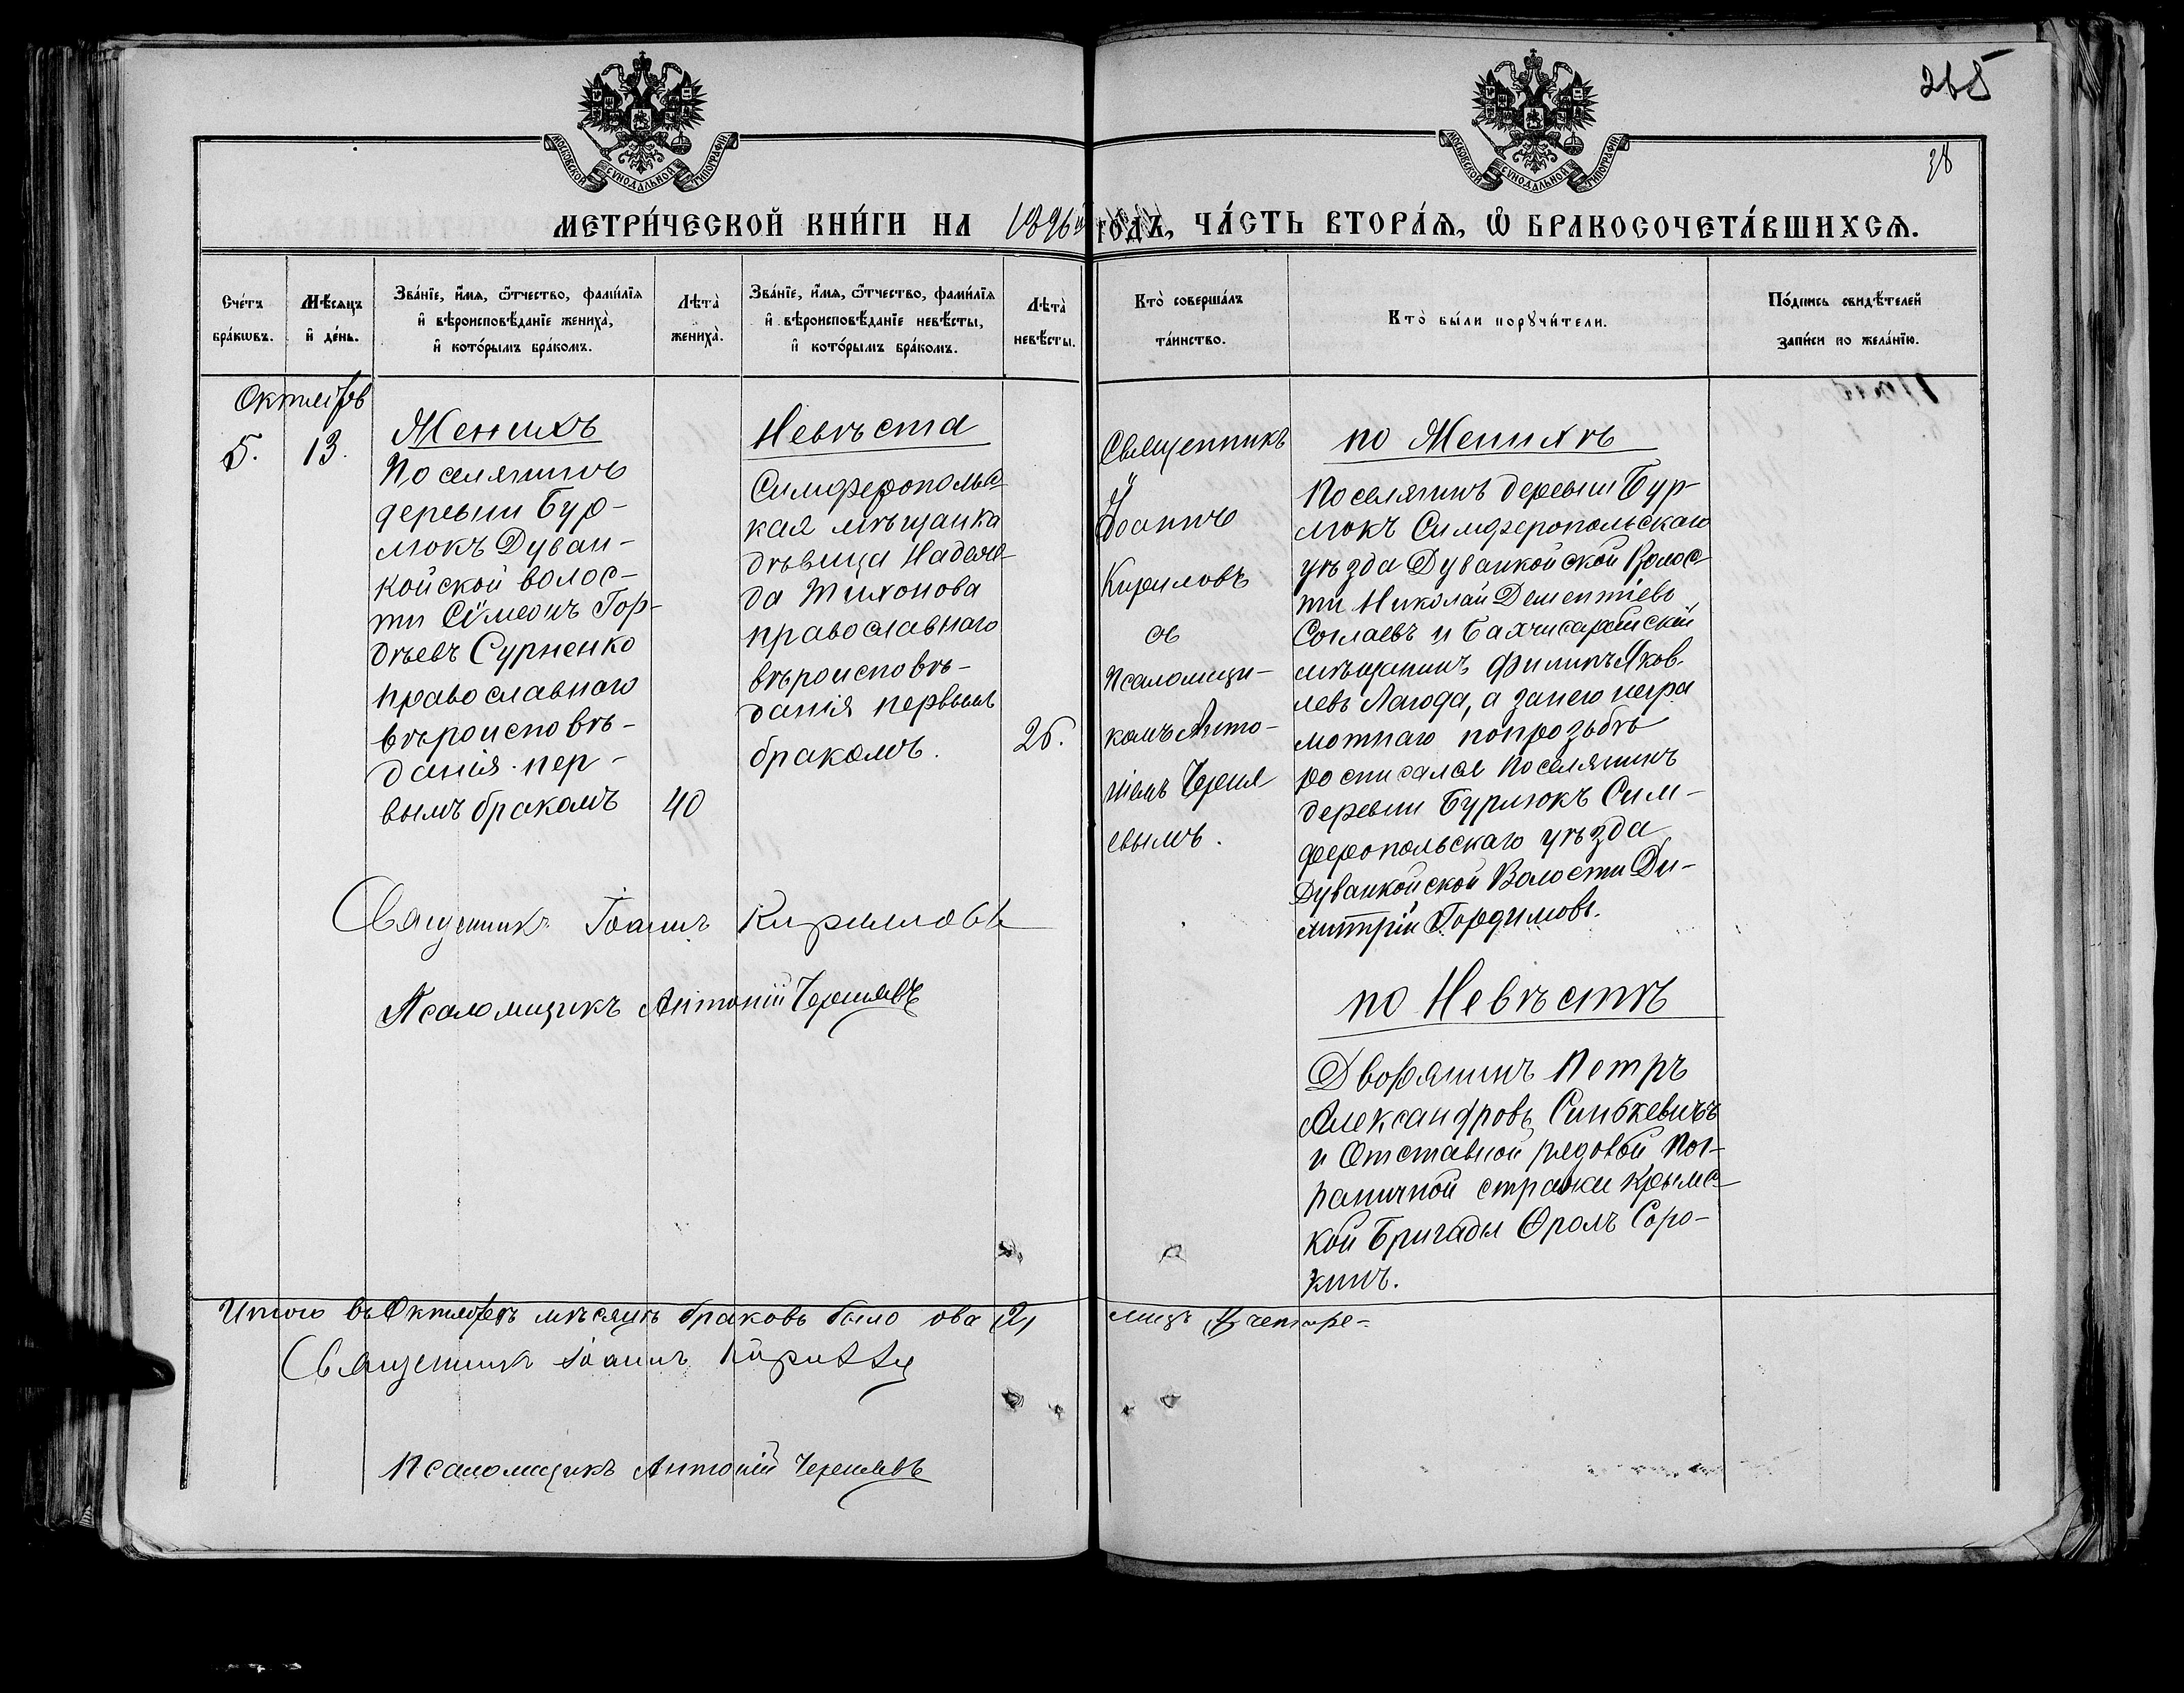 265
38
МОСКОВСКОЙ СѴНОДАЛЬНОЙ ТИПОГРАФІИ
МОСКОВСКОЙ СѴНОДАЛЬНОЙ ТИПОГРАФІИ
МЕТРИ́ЧЕСКОЙ КНИ́ГИ НА 1896й ГОДЪ, ЧА́СТЬ ВТОРА́Ѧ, Ѽ БРАКОСОЧЕТА́ВШИХСѦ.
Сче́тъ
бра́кѡвъ.
Мѣ́сяцъ
и҆ де́нь.
Зва́нїе, и҆́мѧ, ѻ҆́тчество, фами́лїѧ
и҆ вѣроисповѣ́данїе жениха̀,
и҆ кото́рымъ бра́комъ.
Лѣта̀
жениха̀.
Зва́нїе, и҆́мѧ, ѻ҆́тчество, фами́лїѧ
и҆ вѣроисповѣ́данїе невѣ́сты,
и҆ кото́рымъ бра́комъ.
Лѣта̀
невѣ́сты.
Кто̀ соверша́лъ
та́инство.
Кто̀ бы́ли порꙋчи́тели.
По́дпись свидѣ́телей
за́писи по жела́нїю.
Октябрь
5.
13.
Женихъ
Поселянинъ
деревни Бур-
люкъ Дуван-
койской волос-
ти Сѵмеонъ Гор-
дѣевъ Сурненко
православнаго
вѣроисповѣ-
данія пер-
вымъ бракомъ
40
Невѣста
Симферопольс-
кая мѣщанка
дѣвица Надеж-
да Тихонова
православнаго
вѣроисповѣ-
данія первымъ
бракомъ.
26.
Священникъ
Іоаннъ
Кириловъ
съ
псаломщи-
комъ Анто-
ніемъ Череня
евымъ.
по Женихѣ
Поселянинъ деревни Бур-
люкъ Симферопольскаго
уѣзда Дуванкойской Волос-
ти Николай Дементіевъ
и Бахчисарайскій
мѣщанинъ Филипъ Яков-
левъ Лагода, а за него негра
мотнаго по прозьбѣ
росписался поселянинъ
деревни Бурлюкъ Сим-
феропольскаго уѣзда
Дуванкойской Волости Ди-
митрій
по Невѣстѣ
Дворянинъ Петръ
Александровъ Синькевичъ
и Отставной рядовой Пог-
раничной стражи Крымс-
кой Бригады Ѳролъ Соро-
кинъ.
Священникъ Іоаннъ Кирилловъ
Псаломщикъ Антоній
Итого въ Октябрѣ мѣсяцѣ браковъ было два 2, лицъ 4 четыре-
Священникъ Іоаннъ
Псаломщикъ Антоній